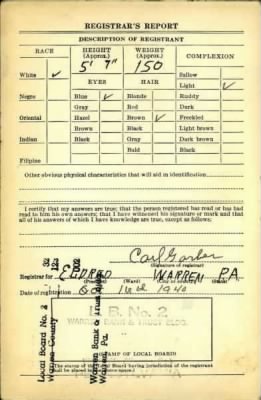 REGISTRAR'S REPORT
DESCRIPTION OF REGISTRANT
RACE HEIGHT (Approx.) WEIGHT (Approx.) COMPLEXION
5' 7" 150 Sallow
White ✓ EYES HAIR Light ✓
Negro Blue ✓ Blonde Ruddy
Gray Red Dark
Oriental Hazel Brown ✓ Freckled
Brown Black Light brown
Indian Black Gray Dark brown
Bald Black
Filipino
Other obvious physical characteristics that will aid in identification
I certify that my answers are true; that the person registered has read or has had
read to him his own answers; that I have witnessed his signature or mark and that
all of his answers of which I have knowledge are true, except as follows:
Carl
(Signature of registrar)
Registrar for WARREN PA.
(Precinct) (Ward) (City or county) (State)
Date of registration 1940
L. B. No. 2
WARREN BANK & TRUST BLDG.
Local Board No. 2
Warren County
Warren Bank & Trust
Warren, Pa.
(STAMP OF LOCAL BOARD)
(The stamp of the Local Board having jurisdiction of the registrant
shall be placed in the above space.)